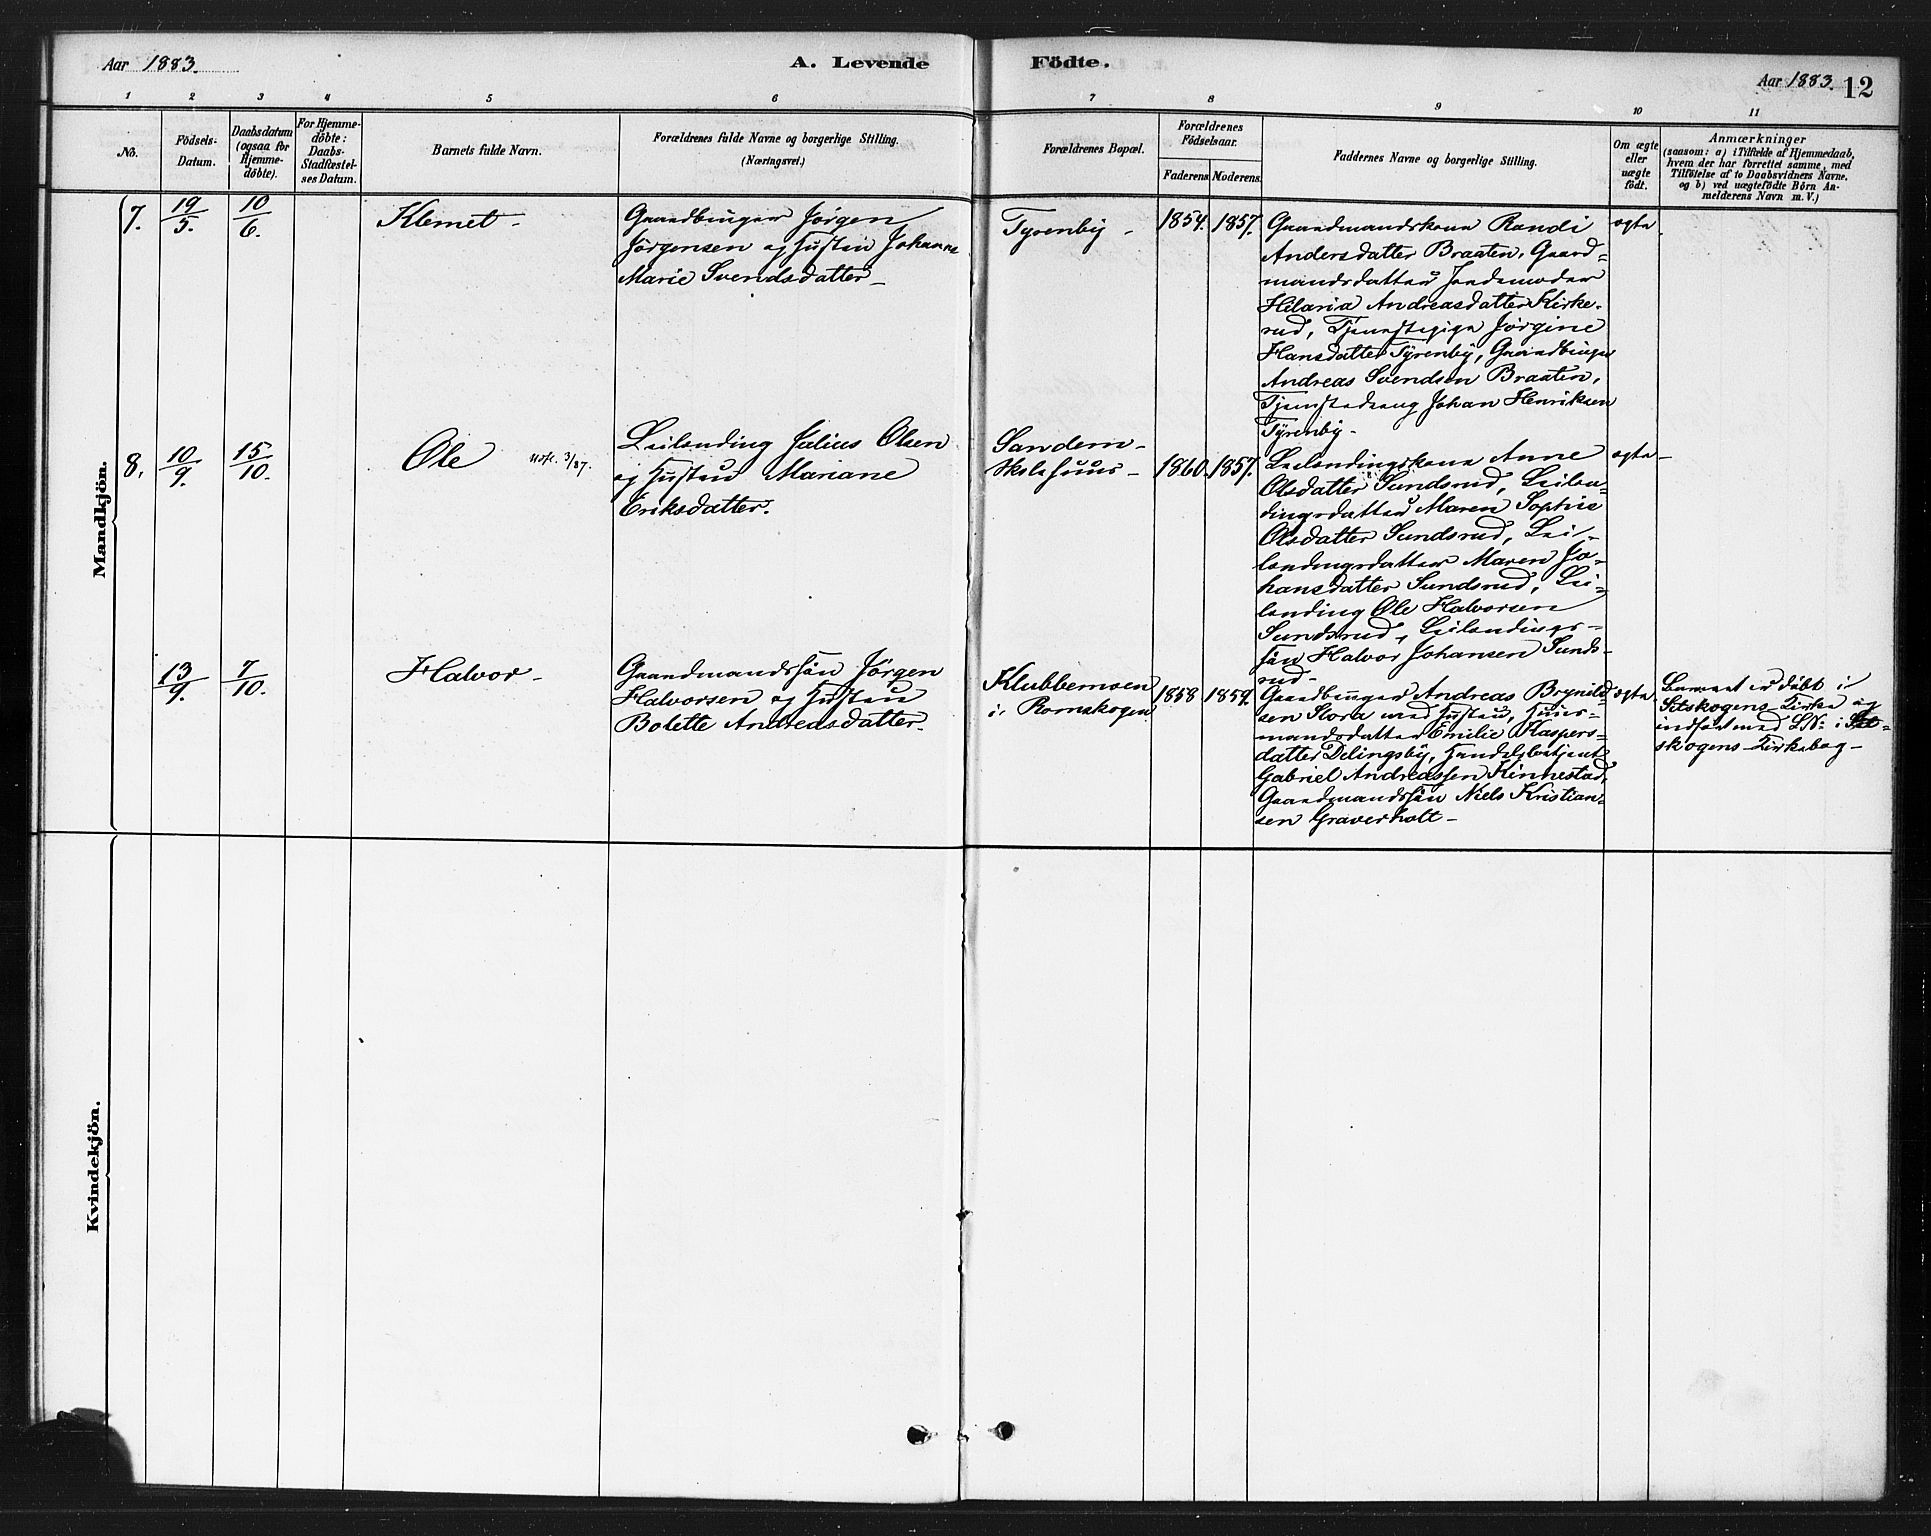 Aar 1883.
A. Levende
Födte.
Aar 1883. 12
1 2 3 4 5 6 7 8 9 10 11
No.
Födsels-
Datum.
Daabsdatum
(ogsaa for
Hjemme-
döbte).
For Hjemme-
döbte:
Daabs-
Stadfæstel-
ses Datum.
Barnets fulde Navn.
Forældrenes fulde Navne og borgerlige Stilling.
(Næringsvei.)
Forældrenes Bopæl.
Forældrenes
Födselsaar.
Faderens. Moderens.
Faddernes Navne og borgerlige Stilling.
Om ægte
eller
uægte
födt.
Anmærkninger
(saasom: a) i Tilfælde af Hjemmedaab,
hvem der har forrettet samme, med
Tilföielse af to Daabsvidners Navne,
og b) ved uægtefödte Börn An-
melderens Navn m. V.)
Mandkjön.
7.
19/5.
10/6.
Klemet -
Gaardbruger Jørgen
Jørgensen og Hustru Johanne
Marie Svendsdatter -
Tyrenby -
1854. 1857.
Gaardmandskone Randi
Andersdatter Braaten, Gaard=
mandsdatter Jordemoder
Hilaria Andreasdatter Kirke-
rud, Tjenestepige Jørgine
Hansdatter Tyrenby, Gaardbruger
Andreas Svendsen Braaten,
Tjenestedreng Johan Henriksen
Tyrenby -
ægte
8.
10/9.
15/10.
Ole
3/87.
Leilending Julius Olsen
og Hustru Mariane
Eriksdatter.
Sandem-
Skolehuus -
1860. 1857.
Leilendingskone Anne
Olsdatter Sundsrud, Leilen=
dingsdatter Maren Sophie
Olsdatter Sundsrud, Lei-
lendingsdatter Maren Jo-
hansdatter Sundsrud, Lei-
lending Ole Halvorsen
Sundsrud, Leilendings-
søn Halvor Johansen Sunds-
rud -
ægte -
13/9.
7/10.
Halvor -
Gaardmandssøn Jørgen
Halvorsen og Hustru
Bolette Andreasdatter.
Klubbemoen
i Romskogen
1858 1859.
Gaardbruger Andreas Brynild=
sen Slora med Hustru, Huus-
mandsdatter Emilie Kaspers-
datter Delingsby, Handelsbetjent
Gabriel Andreassen Kinnestad,
Gaardmandssøn Niels Kristian=
sen Graverholt -
ægte
Barnet er døbt i
Setskogens Kirke og
indført med LN: i Set=
skogens Kirkebog -
Kvindekjön.